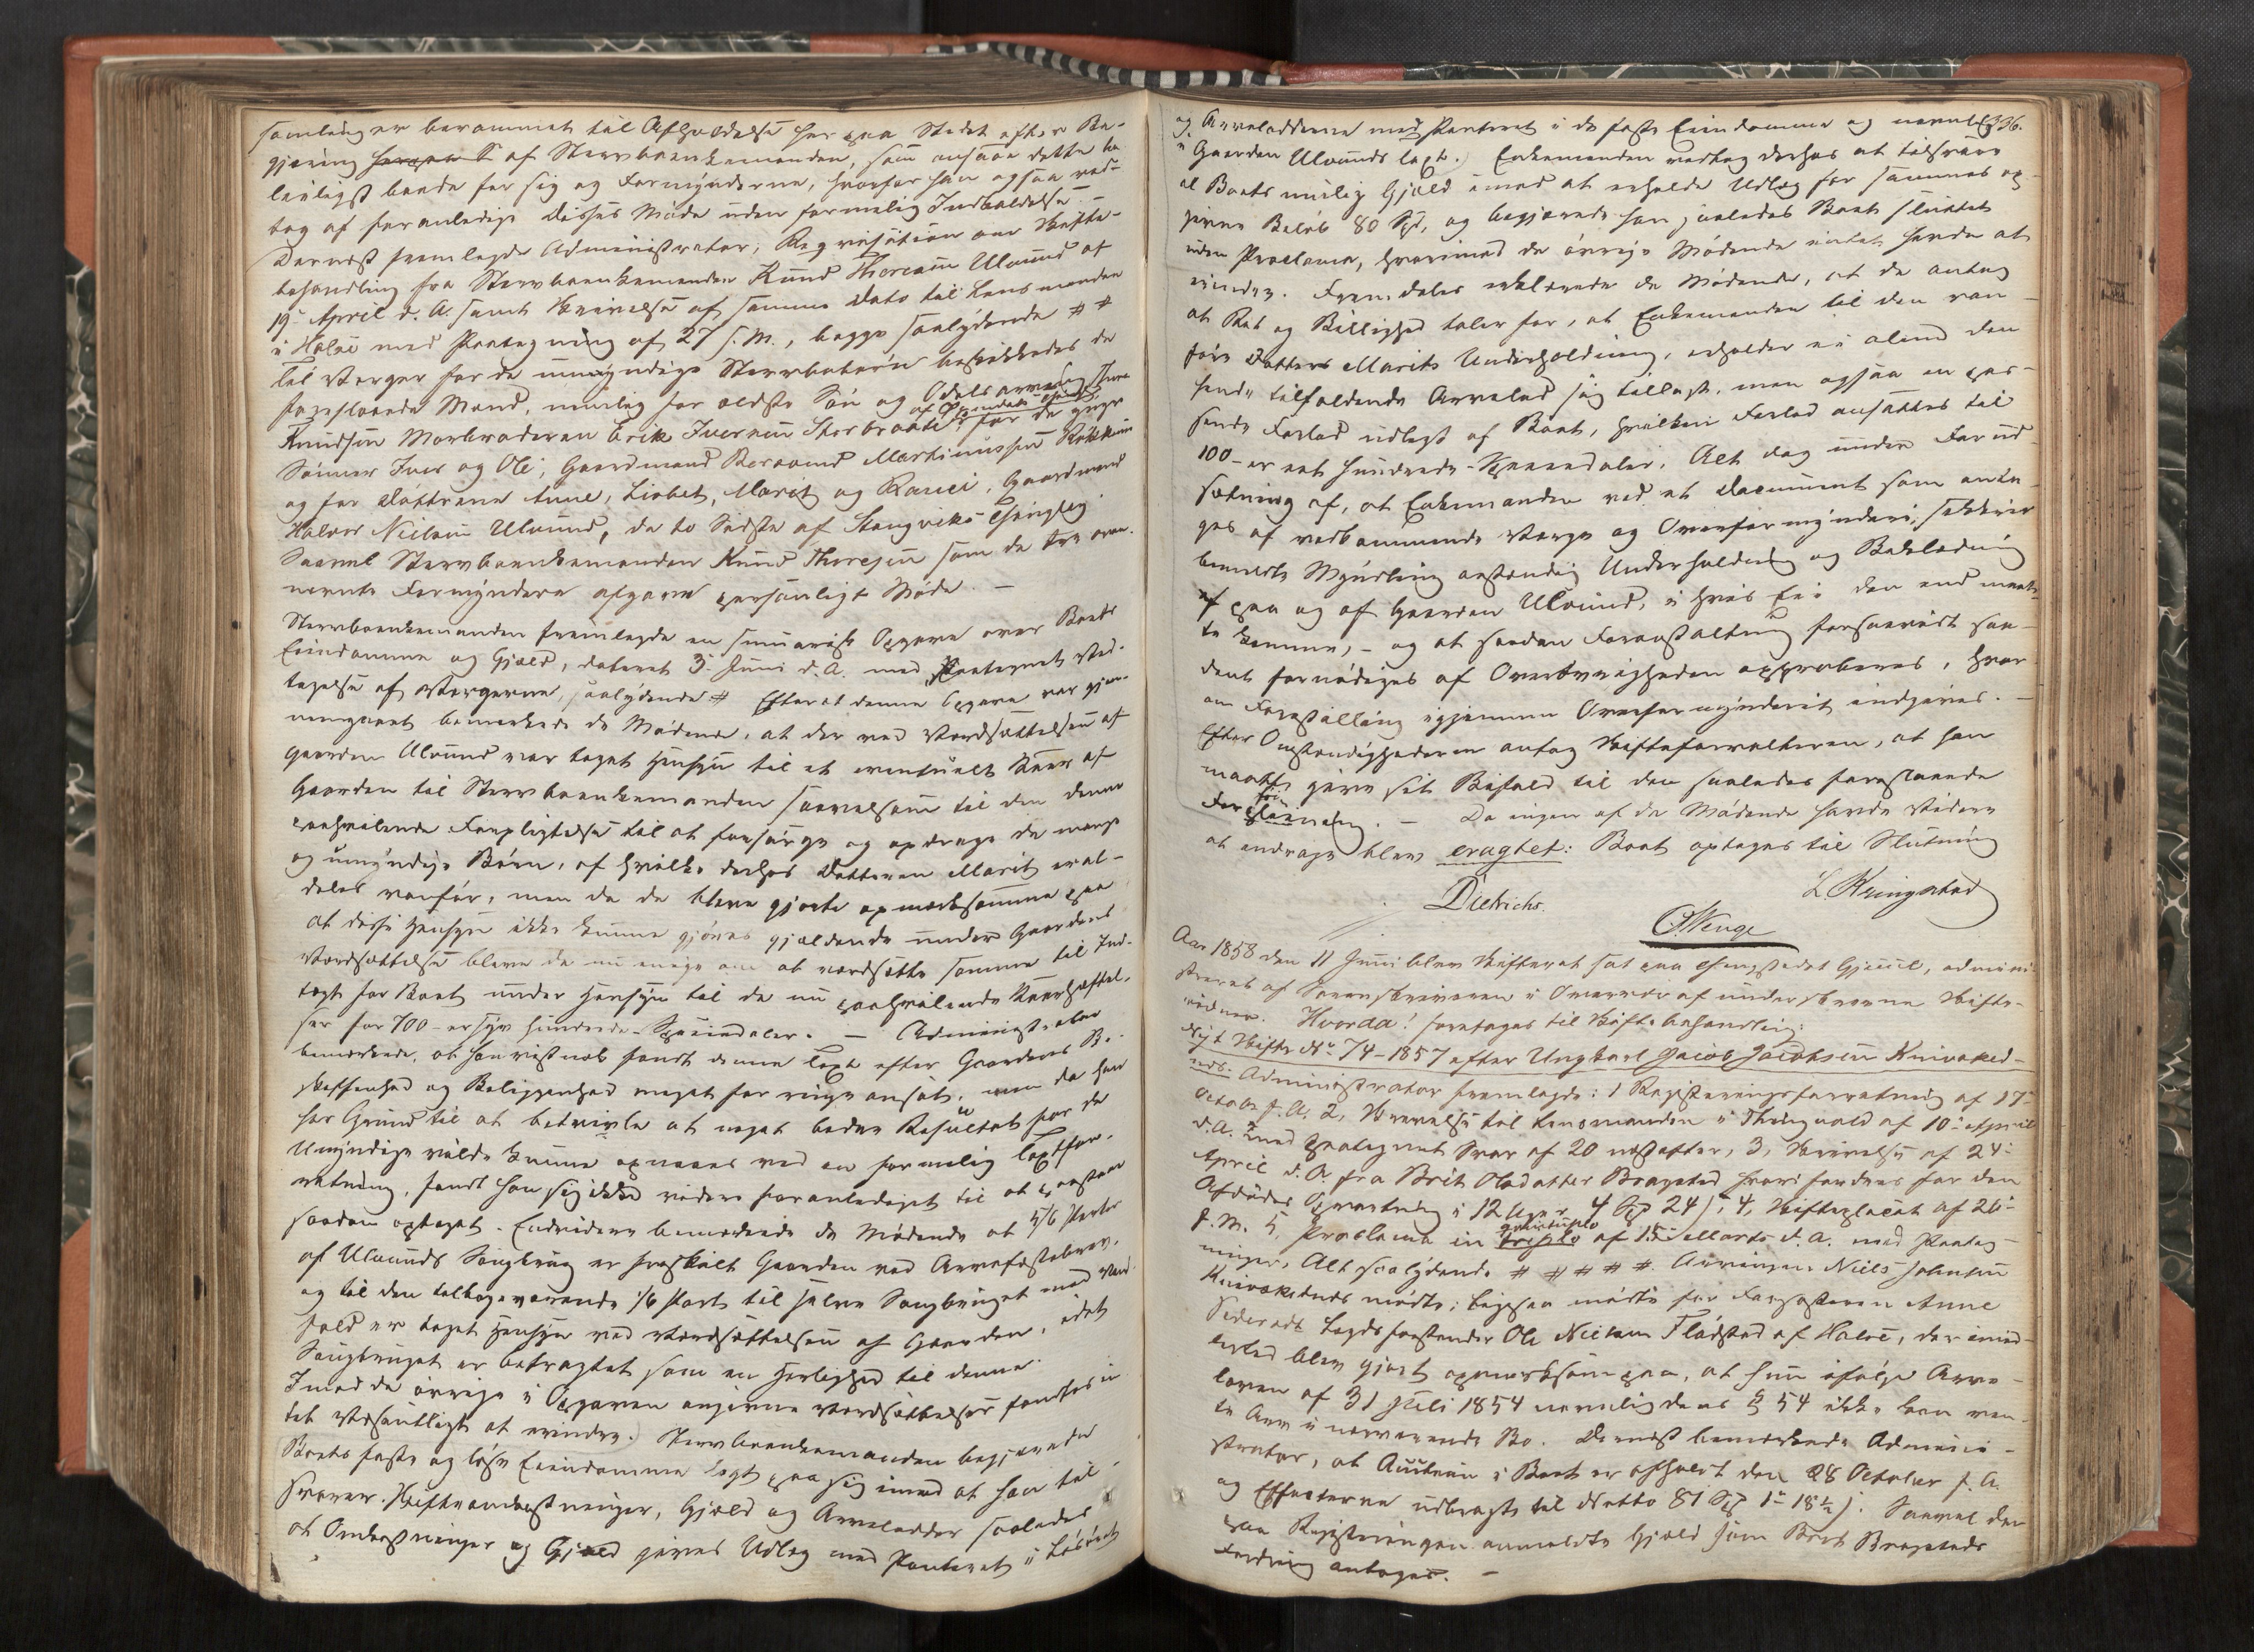 samling er berammet til Afholdelse her paa Stedet efter Be-
gjæring af Stervboenkemanden, som ansaae dette be
leiligst baade for sig og Formynderne, hvorfor han ogsaa ved-
tog at foranledige Disses Møde uden formelig Indkaldelse. -
Dernæst fremlagde Administrator, Reqvisition om Skifte-
behandling fra Stervboenkemanden Knud Thoresen Ulvund af
19 April d. A. samt Skrivelse af samme Dato til Lensmanden
i Halse med Paategning af 27 s. M., begge saalydende # #
Til Verger for de umyndige Stervbobørn beskikkedes de
foreslaaede Mænd, nemlig for ældste Søn og Odelsarving Thore
Knudsen Morbroderen Erik Iversen Storbraate, for de yngre
Sønner Iver og Ole, Gaardmand Martinussen
og for Døttrene Anne, Lisbet, Marit og Ranei, Gaardmand
Halvor Nielsen Ulvund, de to Sidste af Stangviks Thinglag
Saavel Stervboenkemanden Knud Thoresen som de tre oven-
nævnte Formyndere afgave personligt Møde. -
Stervboenkemanden fremlagde en summarisk Opgave over Boets
Eiendomme og Gjæld, dateret 3 Juni d. A. med paategnet Ved-
tagelse af Vergerne, saalydende # Efterat denne Opgave var gjen-
nemgaaet bemærkede de Mødende, at der ved Værdsættelsen af
Gaarden Ulvund var taget Hensyn til et eventuelt Kaar af
Gaarden til Stervboenkemanden saavelsom til den denne
paahvilende Forpligtelse til at forsørge og opdrage de mange
og umyndige Børn, af hvilke derhos Datteren Marit er al-
deles vanfør, men da de bleve gjorte opmærksomme paa
at disse Hensyn ikke kunne gjøres gjældende under Gaardens
Værdsættelse bleve de nu enige om at værdsætte samme til Ind-
tægt for Boet under Hensyn til de nu paahvilende Kaarhæftel-
ser for 700 - er syv hundrede - Speciedaler. - Administrator
bemærkede, at han vistnok fandt denne Taxt efter Gaardens Be-
skaffenhed og Beliggenhed meget for ringe ansat, men da han
har Grund til at betvivle at noget bedre Resultat for de
Umyndige vilde kunne opnaaes ved en formelig Taxtfor-
retning, fandt han sig ikke videre foranlediget til at paastaae
saadan optaget. Endvidere bemærkede de Mødende at 5/6 Parter
af Ulvunds Saugbrug er fraskilt Gaarden ved Arvefæstebrev,
og til den tilbageværende 1/6 Part til halve Saugbruget med Vand
fald er taget Hensyn ved Værdsættelsen af Gaarden, idet
Saugbruget er betragtet som en Herlighed til denne.
Imod de øvrige i Opgaven angivne Værdsættelser fandtes in
tet Væsentligt at erindre. Stervboenkemanden begjærede
Boets faste og løse Eiendomme lagt paa sig imod at han til-
svarer Skifteomkostninger, Gjæld og Arvelodder saaledes
at Omkostninger og Gjæld gives Udlæg med Panteret i Løsøret
336.
og Arvelodderne med Panteret i de faste Eiendomme og navnlig
i Gaarden Ulvunds Taxt. Enkemanden vedtog derhos at tilsvare
al Boets mulig Gjæld imod at erholde Udlæg for sammes op-
givne Beløb 80 Spd, og begjærede han saaledes Boet sluttet
uden Proclama, hvorimod de øvrige Mødende intet havde at
erindre. Fremdeles erklærede de Mødende, at de antog
at Ret og Billighed taler for, at Enkemanden til den van
føre Datters Marits Underholdning, erholder ei alene den
hende tilfaldende Arvelod sig tillagt, men ogsaa en pas-
sende Forlod udlagt af Boet, hvilken Forlod ansattes til
100 - er eet hundrede - Speciedaler. Alt dog under Forud-
sætning af, at Enkemanden ved et Document som anta-
ges af vedkommende Verge og Overformynderi, sikkrer
bemeldte Myndling anstændig Underholdning og Beklædning
paa og af Gaarden Ulvund, i hvis Eie den end maat-
te komme, - og at saadan Foranstaltning forsaavidt saa-
dant fornødiges af Overøvrigheden approberes, hvor
om Forestilling igjennem Overformynderiet indgives. -
Efter Omstændighederne antog Skifteforvalteren, at han
maatte give sit Bifald til den saaledes foreslaaede
Da ingen af de Mødende havde Videre
at andrage blev eragtet: Boet optages til Slutning
Dietrichs. L Kringstad
O. Wenge
Aar 1858 den 11 Juni blev Skifteret sat paa Thingstedet Gjøül, admini-
streret af Sorenskriveren i Overvær af underskrevne Skifte-
vidner. Hvorda! foretages til Skiftebehandling:
Nyt Skifte No 74 - 1857 efter Ungkarl Jacob Jacobsen Knivsked-
nes. Administrator fremlagde: 1 Registreringsforretning af 17
October f. A. 2, Skrivelse til Lensmanden i Thingvold af 10 April
d. A. med paategnet Svar af 20 næstefter, 3, Skrivelse af 24
April d. A. fra Brit Olsdatter Bragstad hvori fordres for den
Afdødes Opvartning i 12 Uger 4 Spd 24 s, 4, Skifteplacat af 26
f. M. 5, Proclama in triplo af 15 Marts d. A. med Paateg-
ninger, Alt saalydende # # # # #. Arvingen Niels Johnsen
Knivskednes mødte; ligesaa mødte for Anne
Lægdsforstander Ole Nielsen Flødstad af Halse, der imid-
lertid blev gjort opmærksom paa, at hun ifølge Arve-
loven af 31 Juli 1854 navnlig dens § 54 ikke kan ven-
te Arv i nærværende Bo. Dernæst bemærkede Admini-
strator, at Auction i Boet er afholdt den 28 October f. A.
og Effecterne udbragt til Netto 81 Spd 1 18½ s. Saavel den
paa Registreringen anmeldte Gjæld som Brit Bragstads
Fordring antoges. -